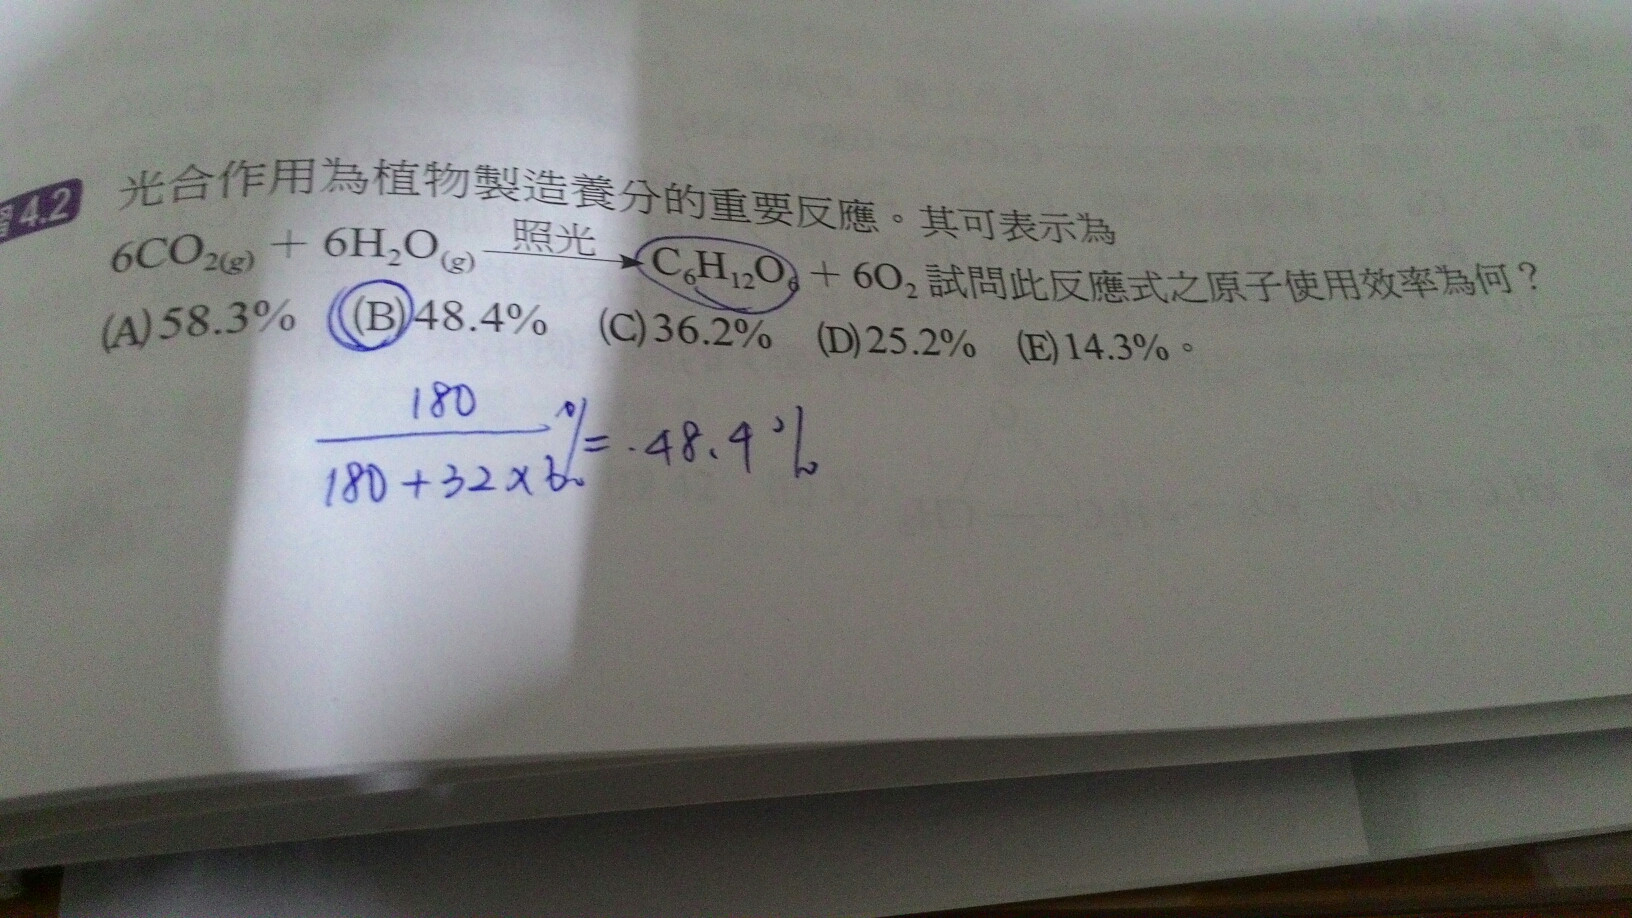 習4.2 光合作用為植物製造養分的重要反應。其可表示為
6CO₂(g) + 6H₂O(g) 照光→ C₆H₁₂O₆ + 6O₂ 試問此反應式之原子使用效率為何？
(A)58.3% (B)48.4% (C)36.2% (D)25.2% (E)14.3%。
180
180+32×6 % = 48.4%